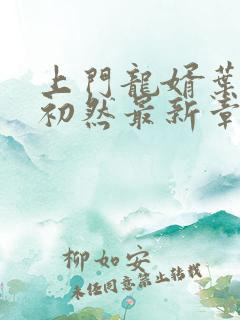 上門龍婿葉
初然最新章
柳如安
未經同意禁止轉載